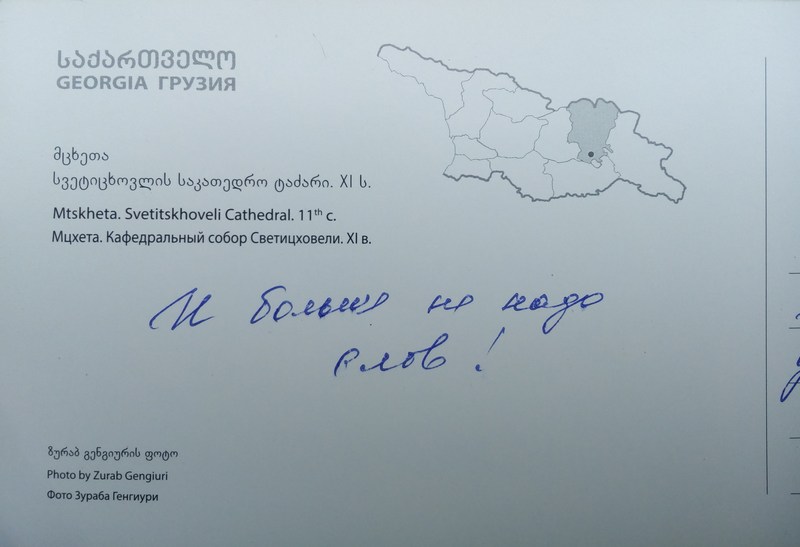 საქართველო
GEORGIA ГРУЗИЯ
მცხეთა
სვეტიცხოვლის საკათედრო ტაძარი. XI ს.
Mtskheta. Svetitskhoveli Cathedral. 11th c.
Мцхета. Кафедральный собор Светицховели. XI в.
И больше не надо
слов!
ზურაბ გენგიურის ფოტო
Photo by Zurab Gengiuri
Фото Зураба Генгиури